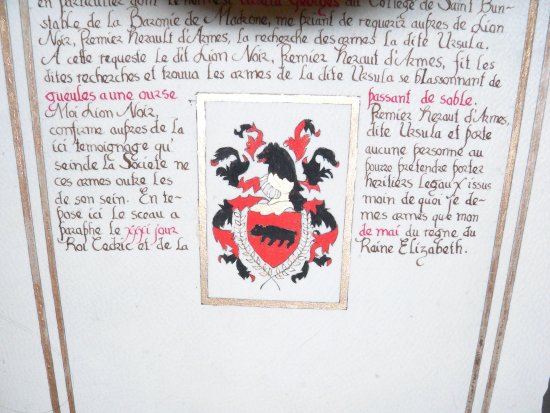 en particulier dont le College de Saint Bun-
stable de la Baronie de Madrone, me priant de requerir aupres de Lion
Noir, Premier Herault d'Armes, la recherche des armes la dite Ursula.
A cette requeste le dit Lion Noir, Premier Heraut d'Armes, fit les
dites recherches et trouva les armes de la dite Ursula se blasonnant de
gueules a une ourse passant de sable.
Moi Lion Noir, Premier Heraut d'Armes,
confirme aupres de la dite Ursula et porte
ici temoignage qu' aucune personne au
seinde la Societe ne pourra pretendre porter
ces armes outre les heritiers legaux issus
de son sein. En te- moin de quoi je de-
pose ici le sceau a mes armes que mon
paraphe le xxxi jour de mai du regne du
Roi Cedric et de la Raine Elizabeth.